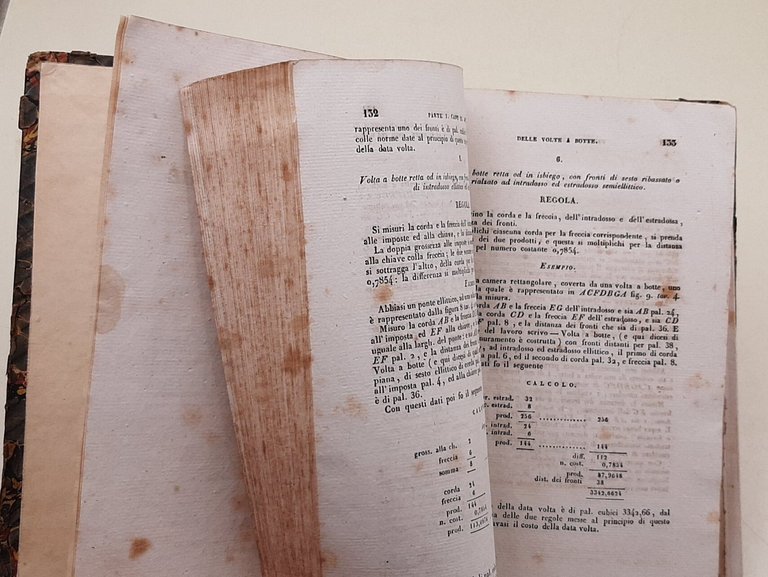 132 PARTE I. CAPO
rappresenta uno dei fronti è di pal.
colle norme date al principio di
della data volta.
Volta a botte retta od in isbiego,
di intradosso ellittico
REGOLA
Si misuri la corda e la freccia
alle imposte ed alla chiave, e la
La doppia grossezza alle imposte
alla chiave colla freccia; le due
si sottragga l'altro, della corda per
0,7854: la differenza si moltiplica
Abbiasi un ponte ellittico, ad una
è rappresentato dalla figura 8
Misuro la corda AB e la freccia
all'imposta ed EF alla chiave,
uguale alla largh. del ponte: e sia AB
EF pal. 2, e la distanza dei fronti
Volta a botte (e qui dicesi di
piana, di sesto ellittico di corda
all'imposta pal. 4, ed alla chiave
è di pal. 36.
Con questi dati poi fo il seguente
gross. alla ch. 2
freccia 6
somma 8
corda 24
freccia 6
prod. 144
n. cost.
prod.
DELLE VOLTE A BOTTE. 133
6.
botte retta od in isbiego, con fronti di sesto ribassato o
rialzato ad intradosso ed estradosso semiellittico.
REGOLA.
la corda e la freccia, dell'intradosso e dell'estradosso,
dei fronti.
ciascuna corda per la freccia corrispondente, si prenda
dei due prodotti, e questa si moltiplichi per la distanza
pel numero costante 0,7854.
ESEMPIO.
camera rettangolare, coverta da una volta a botte, uno
quale è rappresentato in ACFDBGA fig. 9. tav. 4.
la misura.
corda AB e la freccia EG dell'intradosso e sia AB pal. 24,
corda CD e la freccia EF dell'estradosso, e sia CD
EF pal. 8, e la distanza dei fronti che sia di pal. 36. E
del lavoro scrivo — Volta a botte, (e qui dicesi di
è costrutta) con fronti distanti per pal. 38,
ad intradosso ed estradosso ellittico, il primo di corda
pal. 6, ed il secondo di corda pal. 32, e freccia pal. 8.
fo il seguente
CALCOLO.
estrad. 32
estrad. 8
prod. 256 ............... 256
intrad. 24
intrad. 6
prod. 144 ............... 144
diff. 112
n. cost. 0,7854
prod. 87,9648
dist. dei fronti 38
3342,6624
della data volta è di pal. cubici 3342,66, dal
delle due regole messe al principio di questo
il costo della data volta.